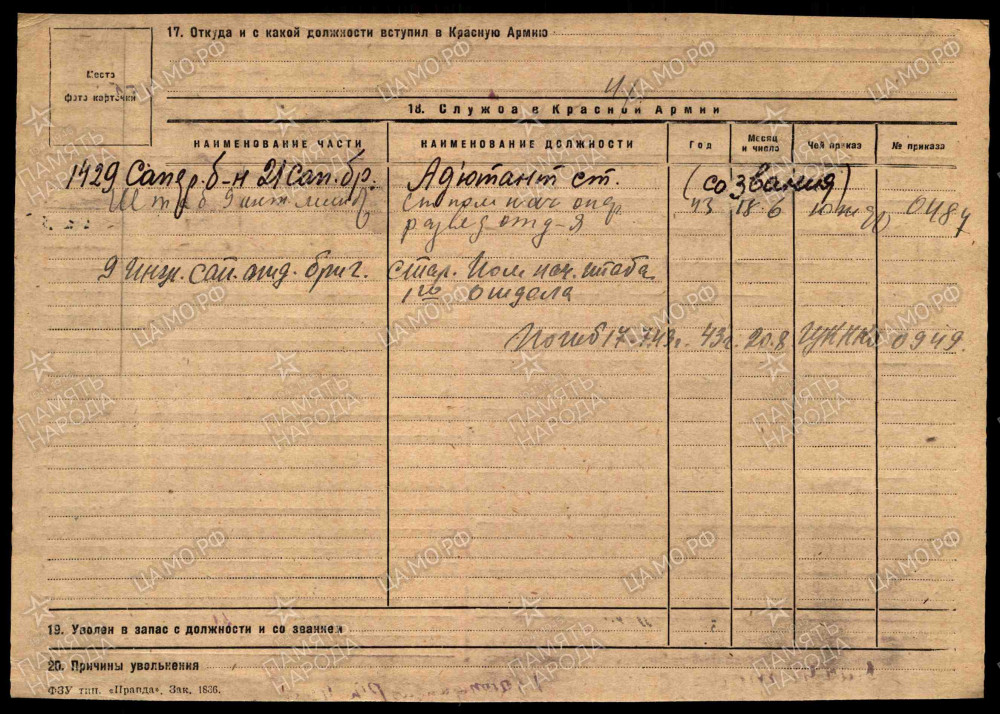 17. Откуда и с какой должности вступил в Красную Армию
Место
фото карточки
18. Служба в Красной Армии
НАИМЕНОВАНИЕ ЧАСТИ НАИМЕНОВАНИЕ ДОЛЖНОСТИ Год Месяц и число Чей приказ № приказа
1429 Сапер. б-н 21 Сап. бр. Адютант ст. (со звания)
Штаб 43 18.6 0487
развед. отд-я
9 Инж. сап. бриг. Стар. Пом. нач. штаба
1го отдела
Погиб 17.7.43г. 43г. 20.8 0949.
19. Уволен в запас с должности и со званием
20. Причины увольнения
ФЗУ тип. «Правда», Зак. 1836.
ПАМЯТЬ НАРОДА
ЦАМО.РФ